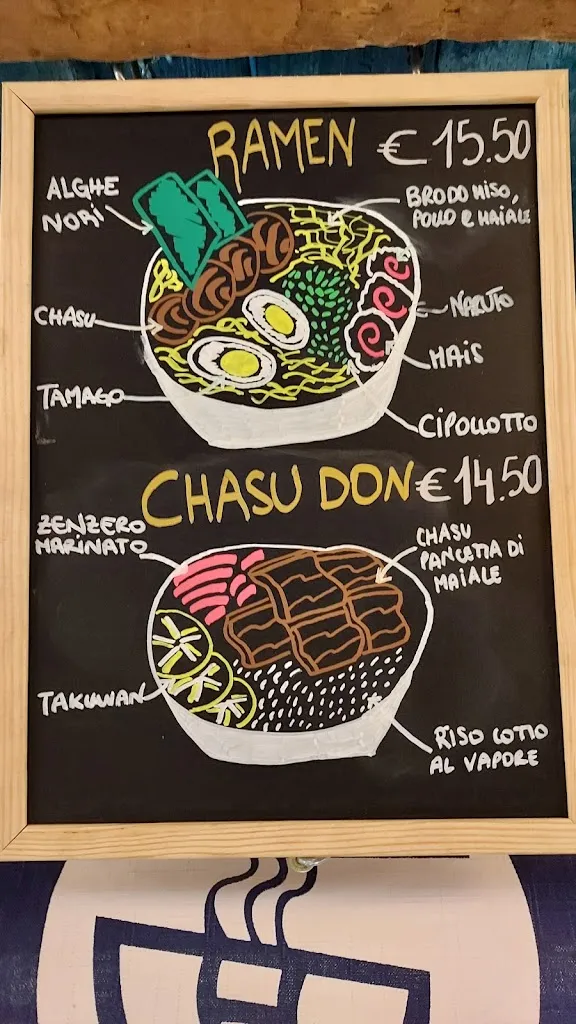 RAMEN € 15.50
ALGHE
NORI
BRODO MISO,
POLLO E MAIALE
CHASU
NARUTO
MAIS
TAMAGO
CIPOLLOTTO
CHASU DON € 14.50
ZENZERO
MARINATO
CHASU
PANCETTA DI
MAIALE
TAKUWAN
RISO COTTO
AL VAPORE